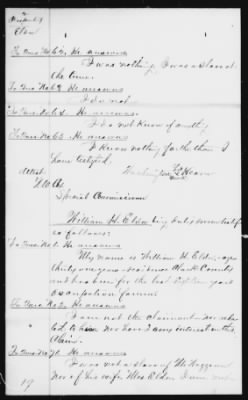 To Ques No 62, He answers
I was nothing, I was a slave at
the time.
To Ques No 63 He answers
I do not
To Ques No 64. He answers.
I do not know of anything
To Ques No 65. He answers
I know nothing further than I
have testified.
Attest
Special Commissioner
William H. Elder being duly sworn testifies
as follows:
To Ques No 1. He answers
My name is William H. Elder, age
thirty one years residence Clark County
and has been for the last eighteen years
occupation farmer
To Ques No 2. He answers
I am not the claimant nor rela
ted to him nor have I any interest in this
Claim.
To Ques No 72. He answers
I was not a slave of
Nor of his wife Mrs Elder I am not
19